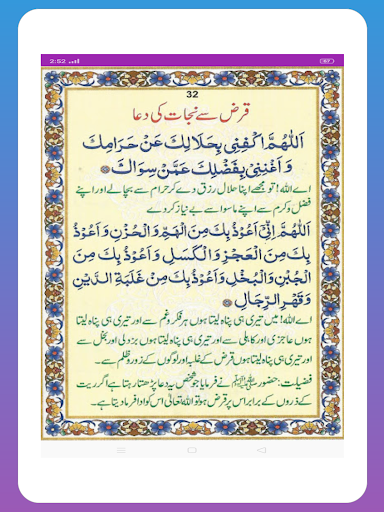 2:52
32
قرض سے نجات کی دعا
اَللّٰهُمَّ اكْفِنِيْ بِحَلَالِكَ عَنْ حَرَامِكَ
وَاَغْنِنِيْ بِفَضْلِكَ عَمَّنْ سِوَاكَ
اے اللہ! تو مجھے اپنا حلال رزق دے کر حرام سے بچالے اور اپنے
فضل و کرم سے اپنے ماسوا سے بے نیاز کر دے
اَللّٰهُمَّ اِنِّيْ اَعُوْذُ بِكَ مِنَ الْهَمِّ وَ الْحُزْنِ وَ اَعُوْذُ
بِكَ مِنَ الْعَجْزِ وَ الْكَسَلِ وَ اَعُوْذُ بِكَ مِنَ
الْجُبْنِ وَالْبُخْلِ وَ اَعُوْذُ بِكَ مِنْ غَلَبَةِ الدَّيْنِ
وَ قَهْرِ الرِّجَالِ
اے اللہ! میں تیری ہی پناہ لیتا ہوں ہر فکر و غم سے اور تیری ہی پناہ لیتا
ہوں عاجزی اور کاہلی سے اور تیری ہی پناہ لیتا ہوں بزدلی اور بخل سے
اور تیری ہی پناہ لیتا ہوں قرض کے غلبہ اور لوگوں کے زور و ظلم سے۔
فضیلت: حضور ﷺ نے فرمایا جو شخص یہ دعا پڑھتا رہتا ہے اگر ریت
کے ذروں کے برابر اس پر قرض ہو تو اللہ تعالٰی اس کو ادا فرما دیتا ہے۔